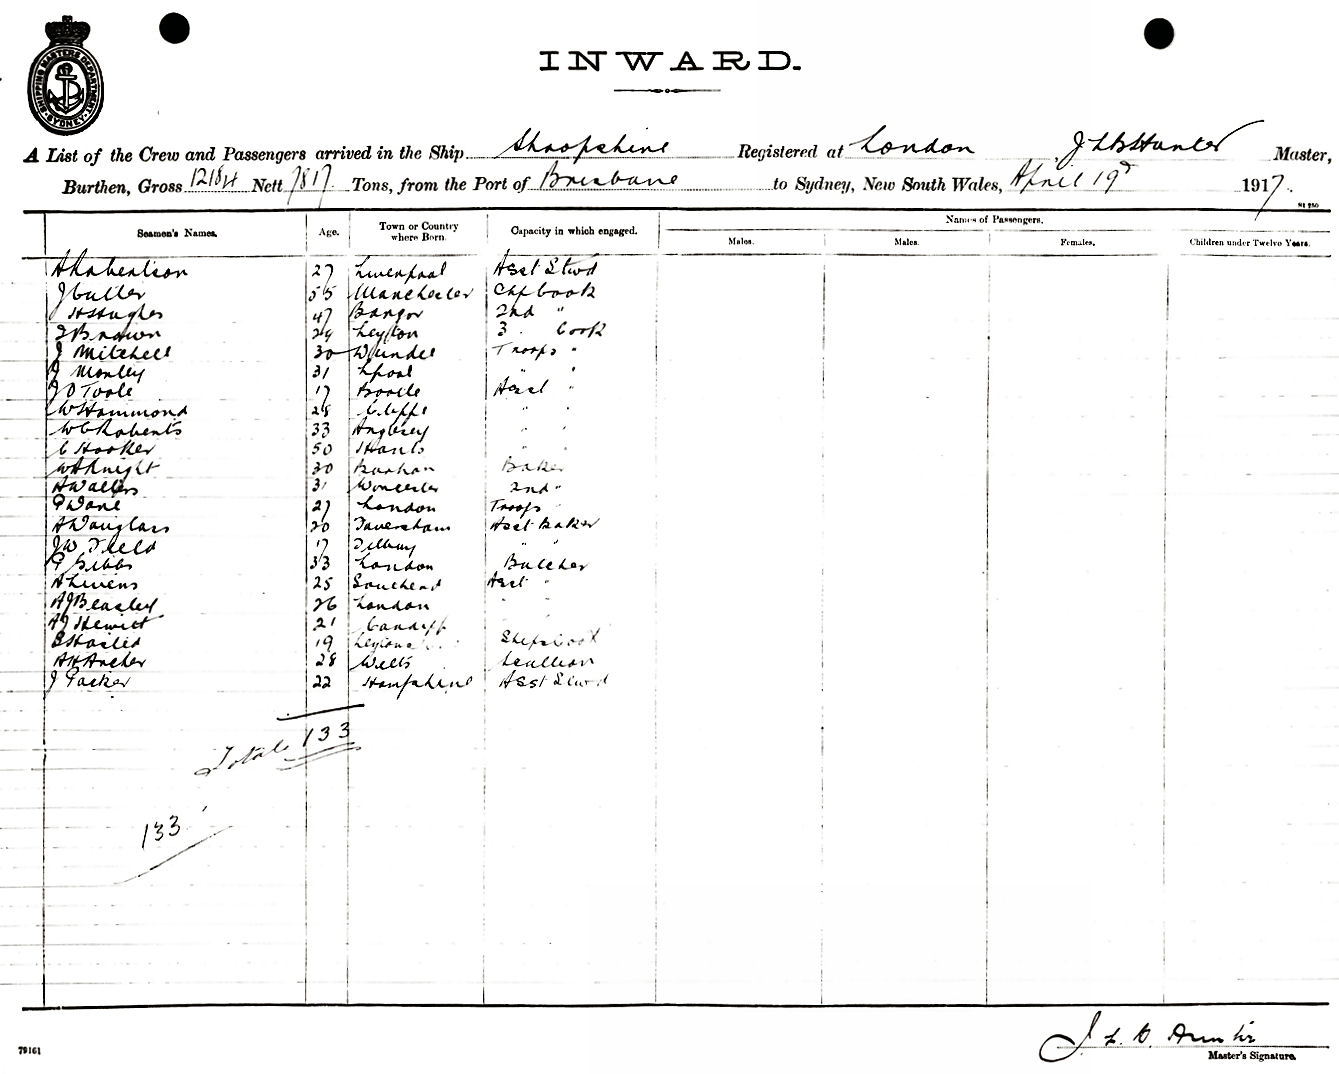 SHIPPING MASTERS DEPARTMENT
SYDNEY
INWARD.
A List of the Crew and Passengers arrived in the Ship Shropshire Registered at London J L B Hunter Master,
Burthen, Gross 12184 Nett 7817 Tons, from the Port of Brisbane to Sydney, New South Wales, April 19 1917.
Seamen's Names. Age. Town or Country where Born. Capacity in which engaged. Names of Passengers.
Males. Males. Females. Children under Twelve Years.
A Robertson 27 Liverpool Asst Stwd
J Cutler 55 Manchester Chf Cook
H Hughes 47 Bangor 2nd "
Brown 29 Leyton 3 Cook
J Mitchell 30 Dundee Troops "
J Morley 31 Lpool " "
J O Toole 17 Bootle Asst "
W Hammond 28 " "
W C Roberts 33 Anglesey " "
C Hooker 50 Hants " "
W A Knight 30 Baker
A Walters 31 Worcester 2nd "
G Dane 27 London Troops "
A Douglass 20 Faversham Asst Baker
J W Field 17 Tilbury " "
G Gibbs 33 London Butcher
A Livens 25 Southend Asst "
A J Beasley 26 London " "
A J Hewitt 21 Cardiff " "
19 Ships Cook
A H Archer 28 Wells Scullion
J Packer 22 Hampshire Asst Stwd
Total 133
133
J L B Hunter
Master's Signature.
79161